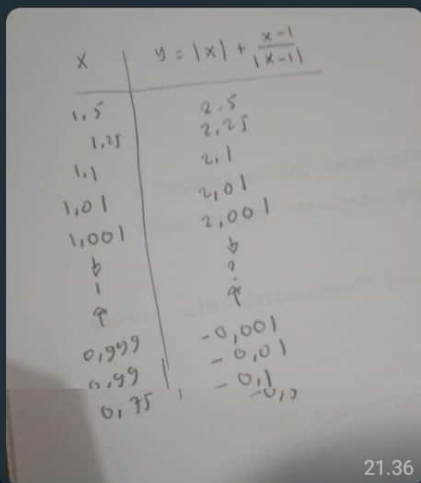 x y = |x| + x-1/|x-1|
1,5 2.5
1.25 2,25
1,1 2,1
1,01 2,01
1,001 2,001
↓ ↓
1 ?
↑ ↑
0,999 -0,001
0,99 -0,01
0,75 -0,1
21.36